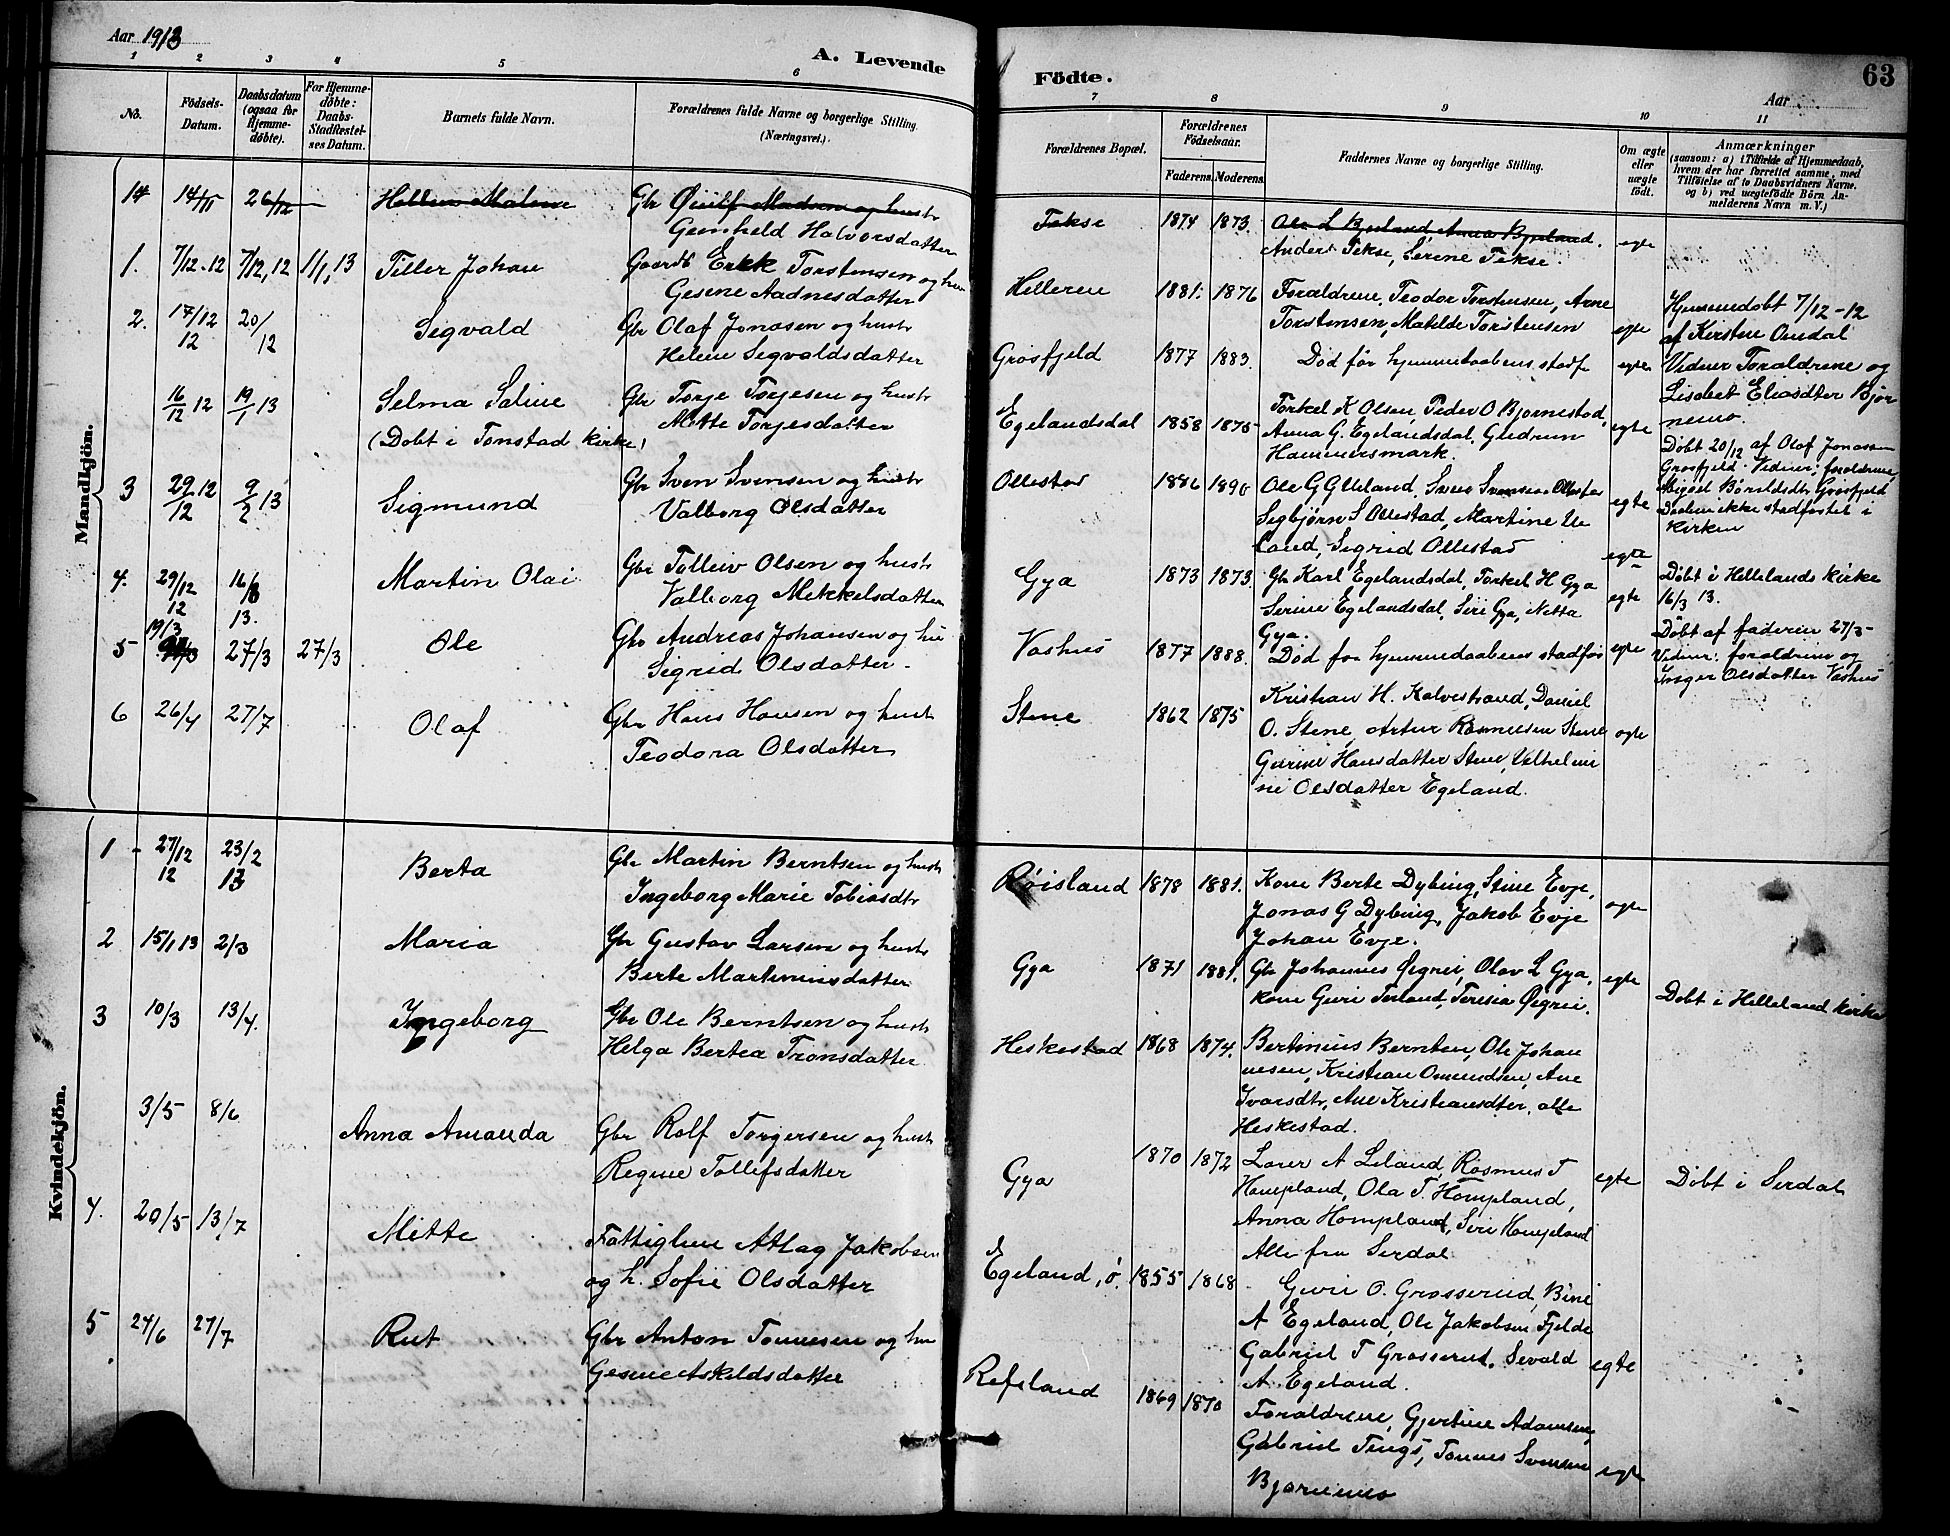 Aar 1913
A. Levende Födte.
63
Aar
1 2 3 4 5 6 7 8 9 10 11
No.
Födsels-Datum.
Daabsdatum (ogsaa for Hjemme-döbte).
For Hjemme-döbte: Daabs-Stadfæstel-ses Datum.
Barnets fulde Navn.
Forældrenes fulde Navne og borgerlige Stilling. (Næringsvei.)
Forældrenes Bopæl.
Forældrenes Födselsaar.
Faderens. Moderens.
Faddernes Navne og borgerlige Stilling.
Om ægte eller uægte födt.
Anmærkninger
(saasom: a) i Tilfælde af Hjemmedaab, hvem der har forrettet samme, med Tilföielse af to Daabsvidners Navne. og b) ved uægtefödte Börn An-melderens Navn m. V.)
Mandkjön.
14 14/11 26/12 Helline Malene
Gbr Øiulf Madsen og hustr
Gunheld Halvorsdatter
Tekse 1874 1873.
Ole L Bjerland, Anna Bjerland.
Anders Tekse, Serine Tekse.
egte
1. 7/12.12 7/12,12 11/1,13 Tiller Johan
Gaardb Erik Torstensen og hu
Gesine Aadnesdatter
Helleren 1881. 1876
Foraldrene, Teodor Torstensen, Arne
Torstensen, Matilde Torstensen
egte
Hjemmedobt 7/12-12
af Kirsten Omdal
Vidner Foraldrene og
Lisabet Eliasdtter Bjor
nemo.
2. 17/12 12 20/12 Sigvald
Gbr Olaf Jonasen og hustr
Helene Segvaldsdatter
Grosfjeld 1877 1883.
Död før hjemmedaabens stadf
egte
Döbt 20/12 af Olaf Jonassen
Grosfjeld. Vidner: foraldrene,
Abigael Bárdsdtr Grosfjeld
Daaben ikke stadfæstet i
Kirken
16/12 12 19/1 13 Selma Saline
(Dobt i Tonstad Kirke)
Gbr Torje Torjesen og hustr
Mette Torjesdatter
Egelandsdal 1858 1875
Torkel K Olsen, Peder O Bjornestad,
Anna G. Egelandsdal, Gudrun
Hammersmark.
egte
3 29/12 12 9/2 13 Sigmund
Gbr Sven Svensen og hustr
Valborg Olsdatter
Ollestad 1886 1890
Ole G Ulleland, Sven Svensen Ollestad
Segbjørn S Ollestad, Martine Ue
land, Sigrid Ollestad
egte
4. 29/12 12 16/3 13. Martin Olai
Gbr Tolleiv Olsen og hustr
Valborg Mekkelsdatter
Gya 1873 1873.
Gb Karl Egelandsdal, Torkel H Gya
Serine Egelandsdal, Siri Gya, Netta
Gya.
egte
Döbt i Hellelands Kirke
16/3 13.
5 19/3 27/3 27/3 Ole
Gbr Andreas Johansen og hu
Sigrid Olsdatter
Vashus 1877 1888.
Död før hjemmedaabens stadfæs
egte
Döbt af faderen 27/3
Vidner: foraldrene og
Inger Olsdatter Vashus
6 26/4 27/7 Olaf
Gbr Hans Hansen og hustr
Teodora Olsdatter
Stene 1862 1875
Kristian H. Kalvestrand, Daniel
O. Stene, Artur Rasmussen Stene
Gurine Hansdatter Stene, Velhelmi
ne Olsdatter Egeland.
egte
Kvindekjön.
1 27/12 12 23/2 13 Berta
Gbr Martin Berntsen og hustr
Ingeborg Marie Tobiasdtr
Røisland 1878 1881.
Kone Berte Dybing, Stine Evje,
Jonas G Dybing, Jakob Evje
Johan Evje.
egte
2 15/1 13 2/3 Maria
Gbr Gustav Larsen og hustr
Berte Martiniusdatter
Gya 1871 1881.
Gbr Johannes Øegrei, Olav L Gya,
kone Guri Terland, Teresia Øegrei.
egte
Dobt i Helleland Kirke
3 10/3 13/4. Ingeborg
Gbr Ole Berntsen og hustr
Helga Bertea Tronsdatter
Heskestad 1868 1874.
Bertinius Berntsen, Ole Johan
nesen, Kristian Omundsen, Ane
Ivarsdtr, Ane Kristiansdtter, alle
Heskestad.
3/5 8/6 Anna Amanda
Gbr Rolf Torgersen og hustr
Regine Tollefsdatter
Gya 1870 1872
Laver A Liland, Rasmus T
Hompland, Ola T. Hompland,
Anna Hompland, Siri Hompland
Alle fra Serdal
egte
Döbt i Serdal
4. 20/5 13/7 Mette
Fattiglem Atlag Jakobsen
og h. Sofie Olsdatter
Egeland, ö. 1855 1868
Guri O. Grosserud, Bine
A Egeland, Ole Jakobsen Fjelde
Gabriel T Grosserud, Sevald
A. Egeland.
egte
5 24/6 27/7 Rut
Gbr Anton Tonnesen og hu
Gesine Askildsdatter
Refsland 1869 1870
Foraldrene, Gjertine Adamsen,
Gabriel Tengs, Tonnes Svensen
Bjornemo
egte